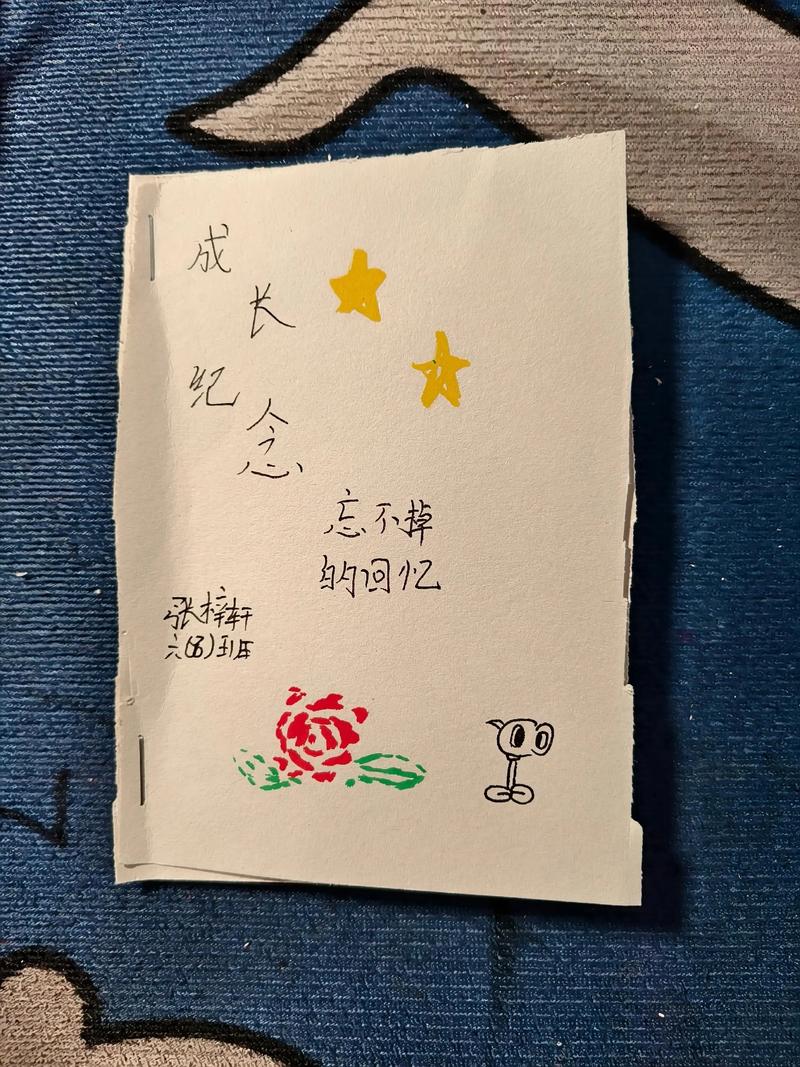 成
长
纪
念
忘不掉
的回忆
张梓轩
六(5)班